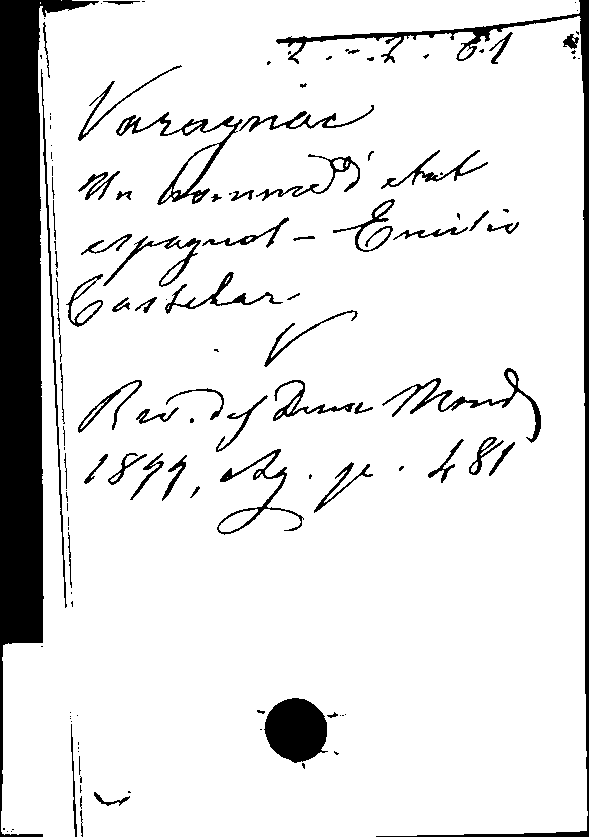 2 - 2. 61
Varagnac
Un homme d'etat
espagnol - Emilio
Castelar
V
Rev. des Deux Mond
1899, Ag. p. 481